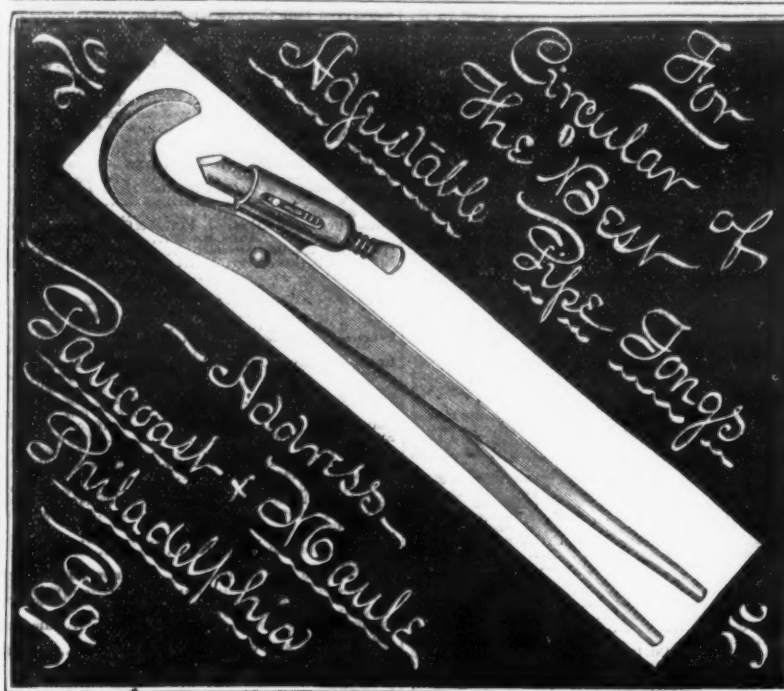 For
Circular of
The Best
Adjustable
Pipe Tongs
Address
Pancoast + Maule
Philadelphia
Pa